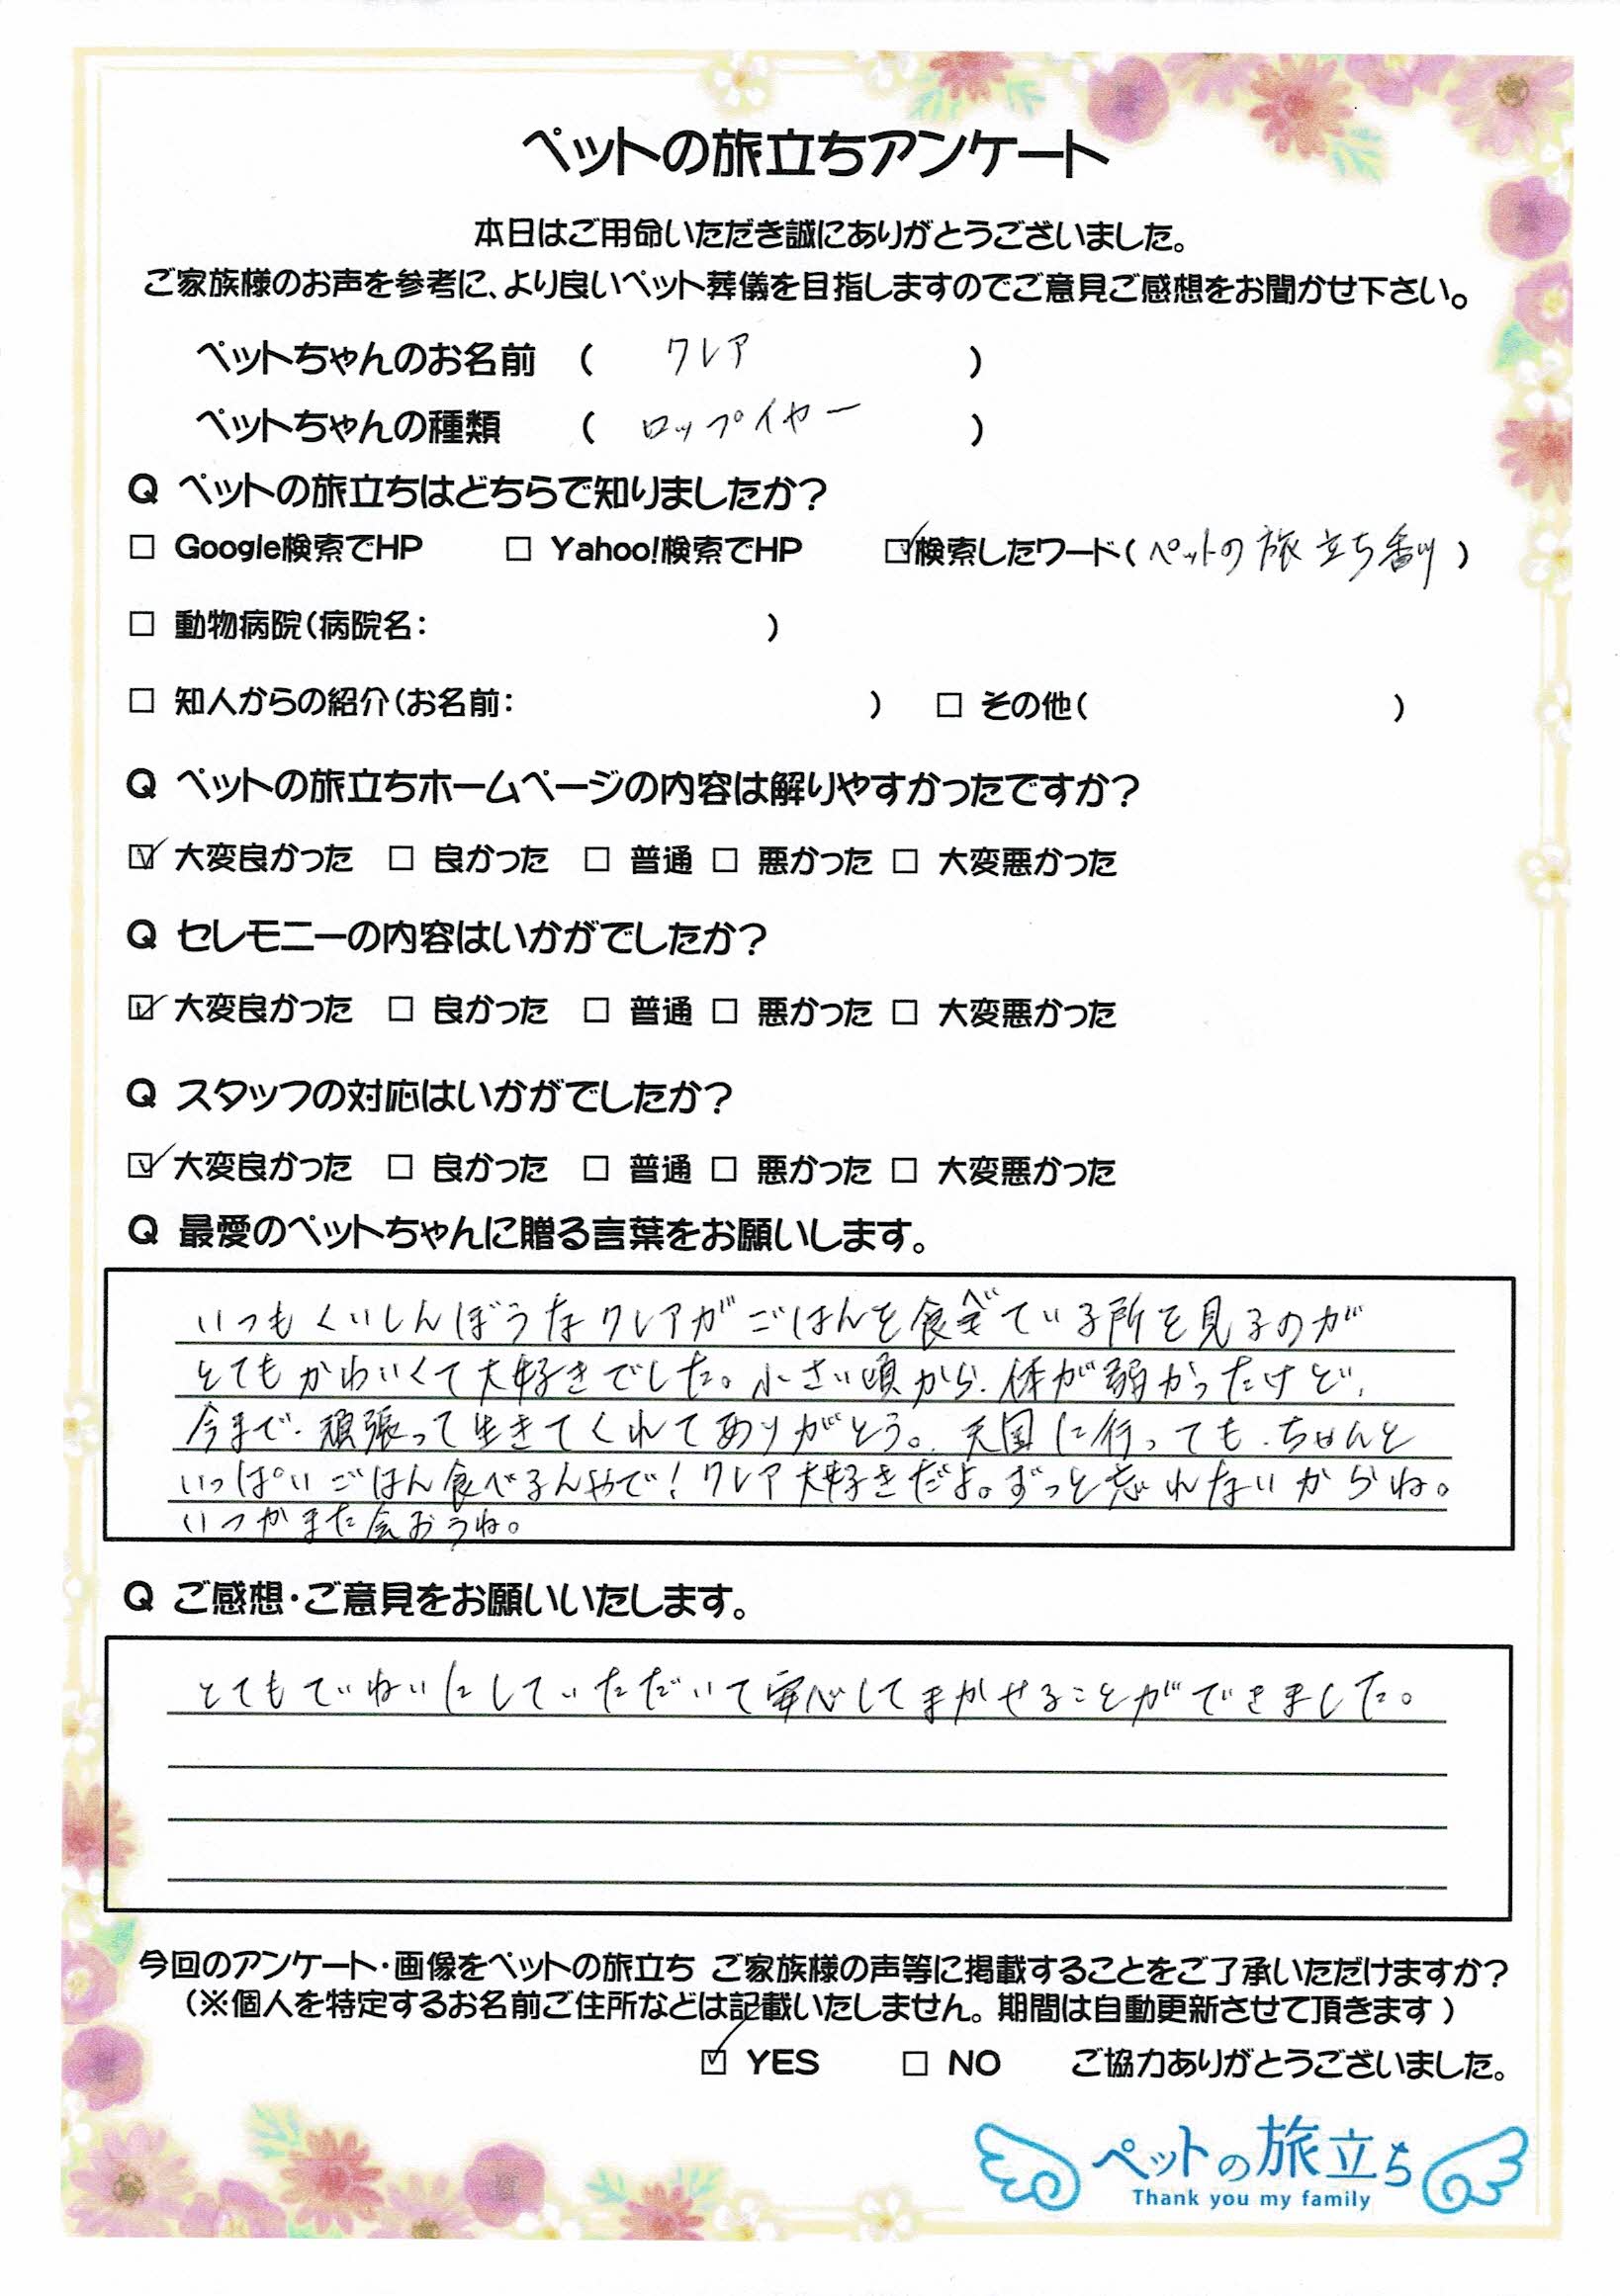 ペットの旅立ちアンケート
本日はご用命いただき誠にありがとうございました。
ご家族様のお声を参考に、より良いペット葬儀を目指しますのでご意見ご感想をお聞かせ下さい。
ペットちゃんのお名前 ( クレア )
ペットちゃんの種類 ( ロップイヤー )
Q ペットの旅立ちはどちらで知りましたか?
□ Google検索でHP □ Yahoo!検索でHP ☑検索したワード(ペットの旅立ち香川)
□ 動物病院(病院名: )
□ 知人からの紹介(お名前: ) □ その他( )
Q ペットの旅立ちホームページの内容は解りやすかったですか?
☑ 大変良かった □ 良かった □ 普通 □ 悪かった □ 大変悪かった
Q セレモニーの内容はいかがでしたか?
☑ 大変良かった □ 良かった □ 普通 □ 悪かった □ 大変悪かった
Q スタッフの対応はいかがでしたか?
☑ 大変良かった □ 良かった □ 普通 □ 悪かった □ 大変悪かった
Q 最愛のペットちゃんに贈る言葉をお願いします。
いつもくいしんぼうなクレアがごはんを食べている所を見るのが
とてもかわいくて大好きでした。小さい頃から、体が弱かったけど、
今まで、頑張って生きてくれてありがとう。天国に行っても、ちゃんと
いっぱいごはん食べるんやで!クレア大好きだよ。ずっと忘れないからね。
いつかまた会おうね。
Q ご感想・ご意見をお願いいたします。
とてもていねいにしていただいて安心してまかせることができました。
今回のアンケート・画像をペットの旅立ち ご家族様の声等に掲載することをご了承いただけますか?
(※個人を特定するお名前ご住所などは記載いたしません。期間は自動更新させて頂きます)
☑ YES □ NO ご協力ありがとうございました。
ペットの旅立ち
Thank you my family